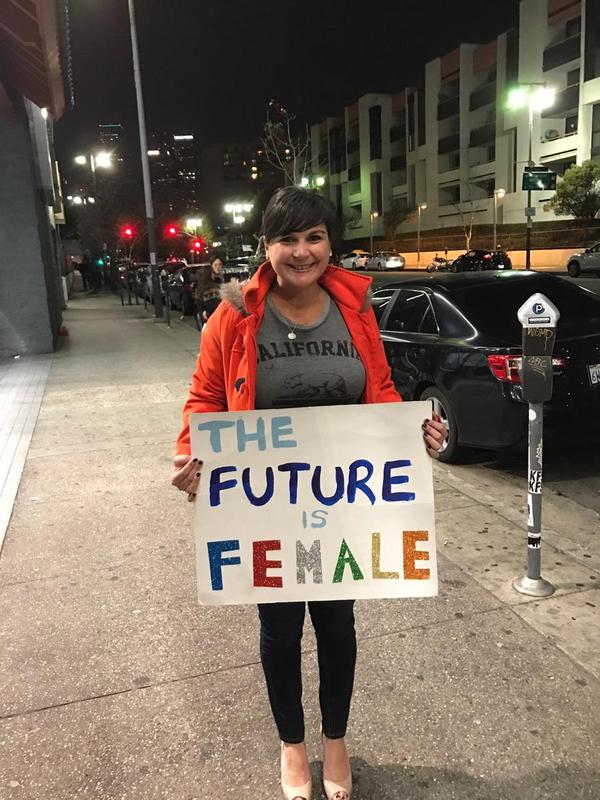 CALIFORNI
THE
FUTURE
IS
FEMALE
P